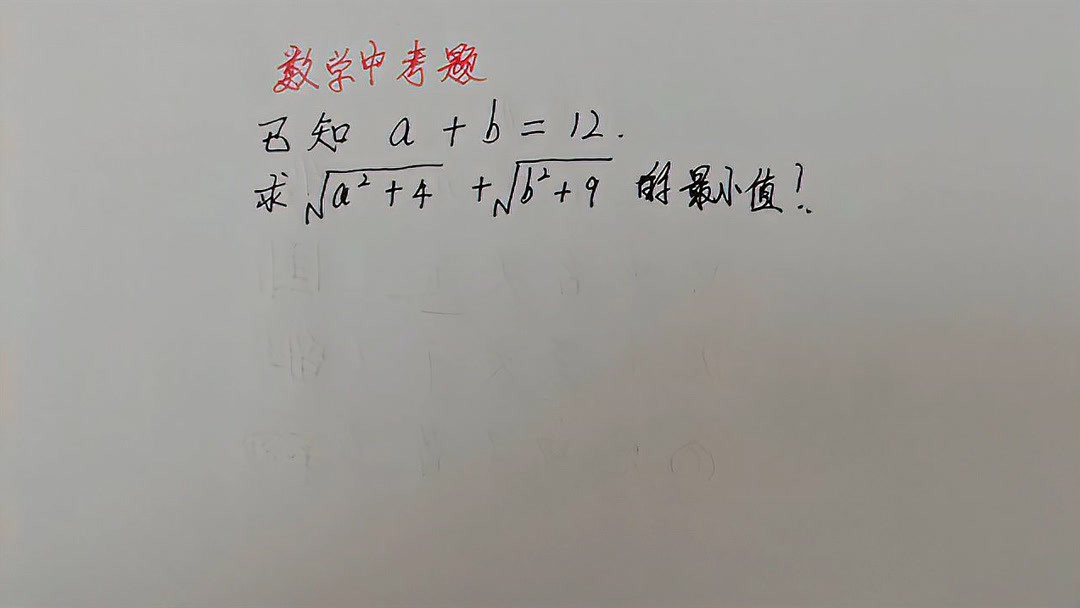 数学中考题
已知 a+b=12.
求 √(a²+4) +√(b²+9) 的最小值!